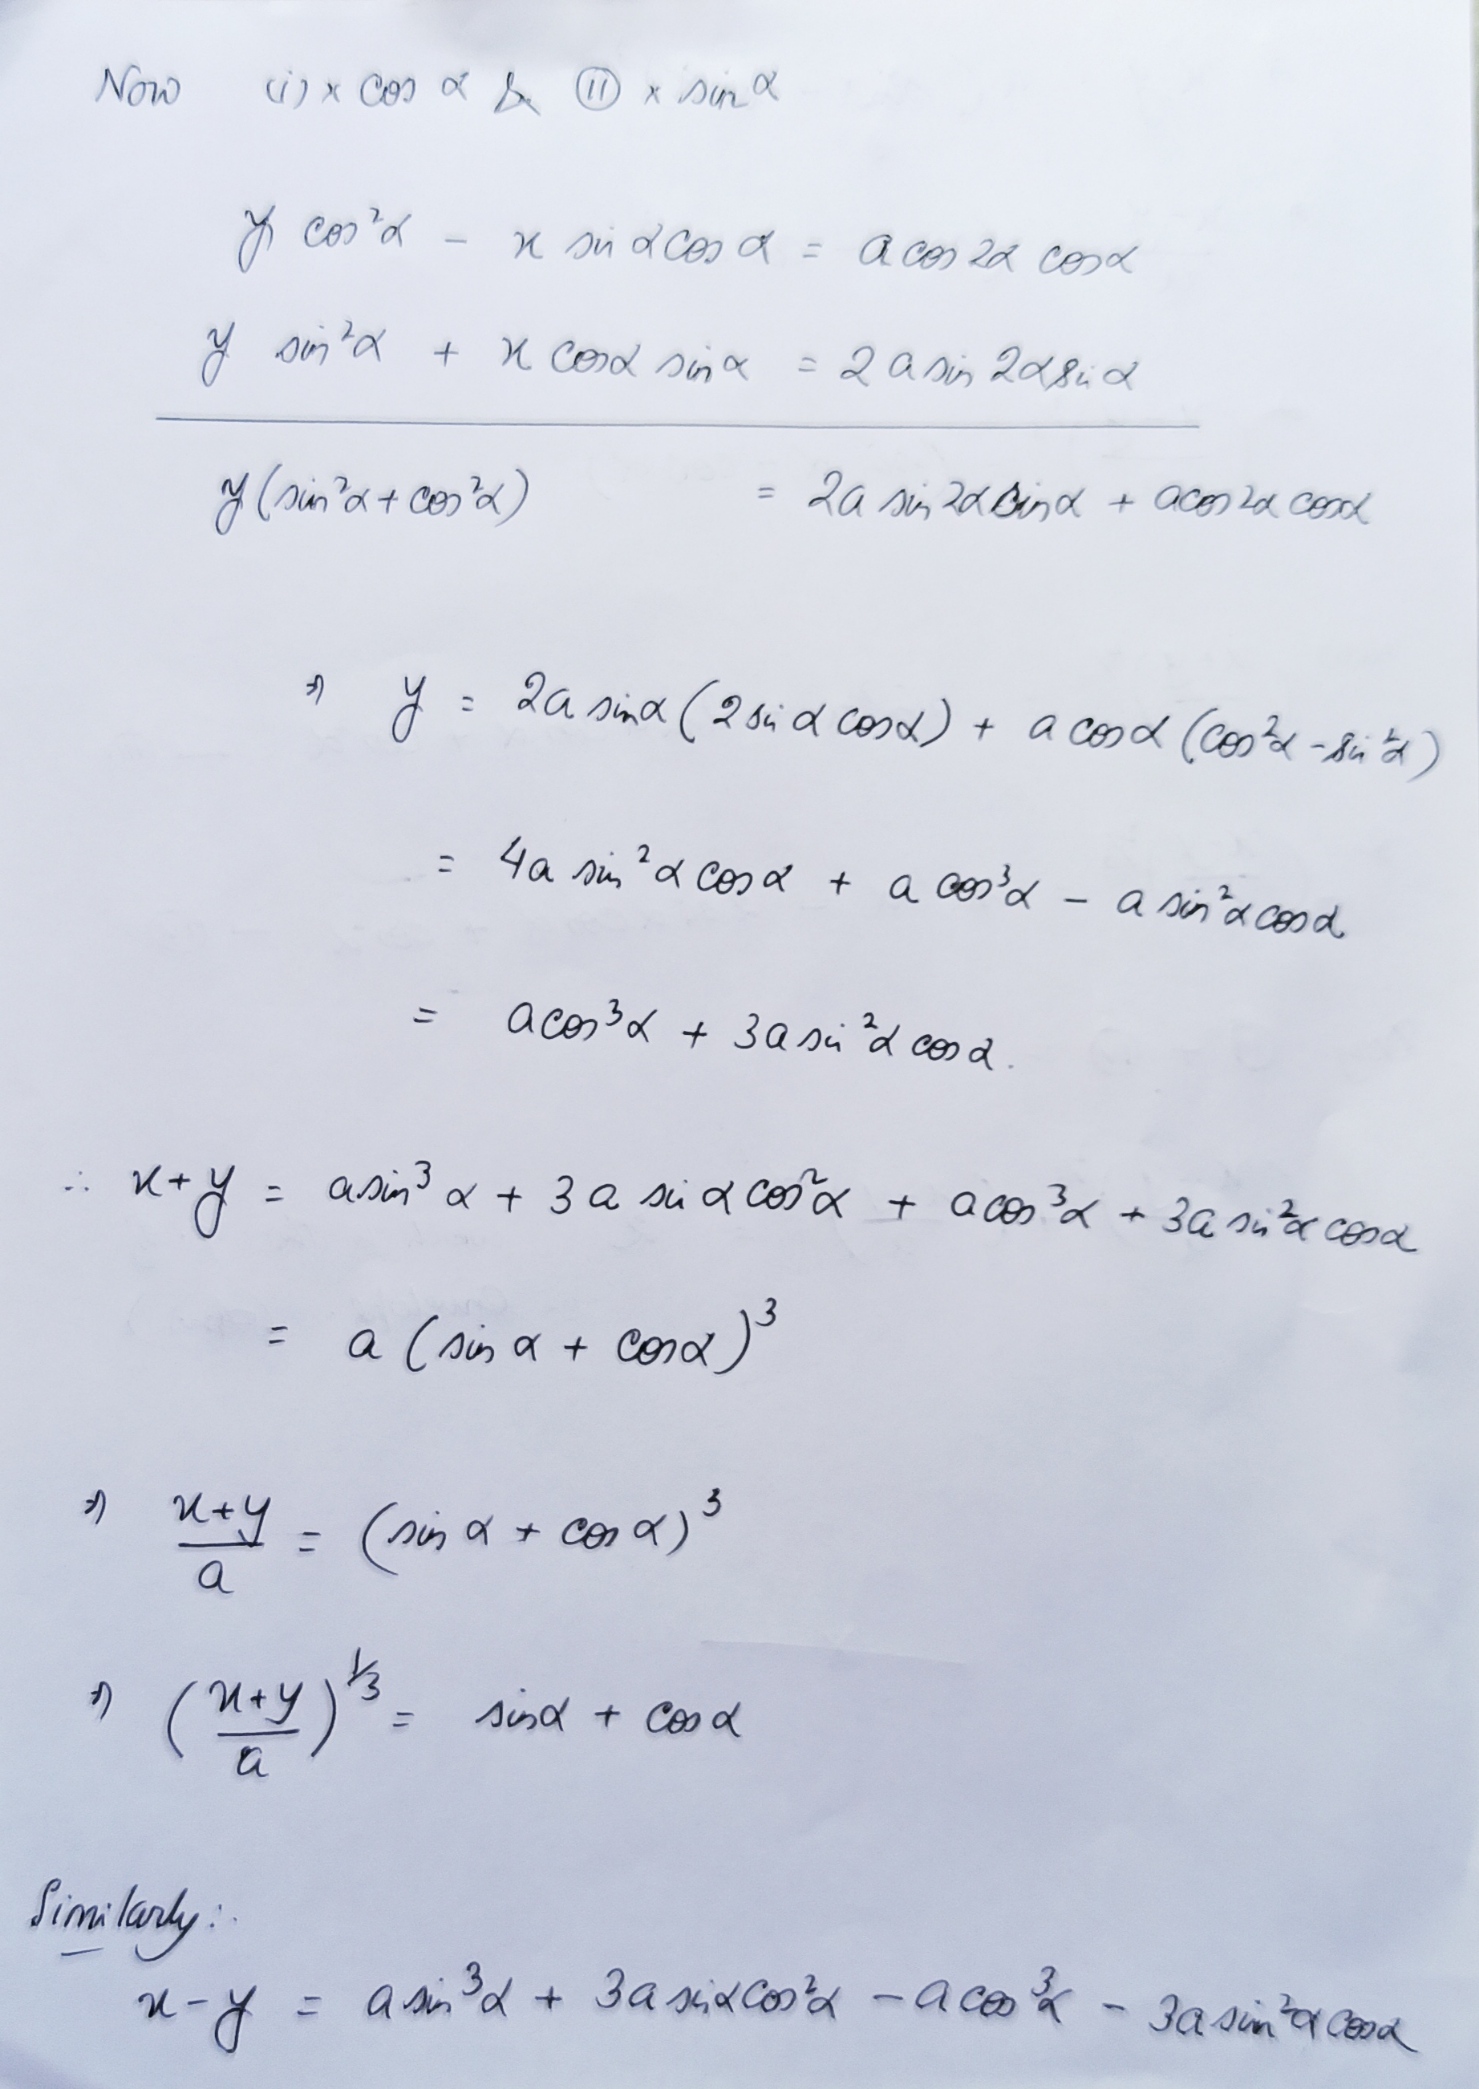 Now (i) × cos α & (ii) × sin α
y cos²α - x sin α cos α = a cos 2α cos α
y sin²α + x cos α sin α = 2 a sin 2α sin α
y (sin²α + cos²α) = 2a sin 2α sin α + a cos 2α cos α
⇒ y = 2a sin α (2 sin α cos α) + a cos α (cos²α - sin²α)
= 4a sin²α cos α + a cos³α - a sin²α cos α
= a cos³α + 3a sin²α cos α.
∴ x+y = a sin³α + 3a sin α cos²α + a cos³α + 3a sin²α cos α
= a (sin α + cos α)³
⇒ (x+y)/a = (sin α + cos α)³
⇒ ((x+y)/a)^1/3 = sin α + cos α
Similarly:
x-y = a sin³α + 3a sin α cos²α - a cos³α - 3a sin²α cos α